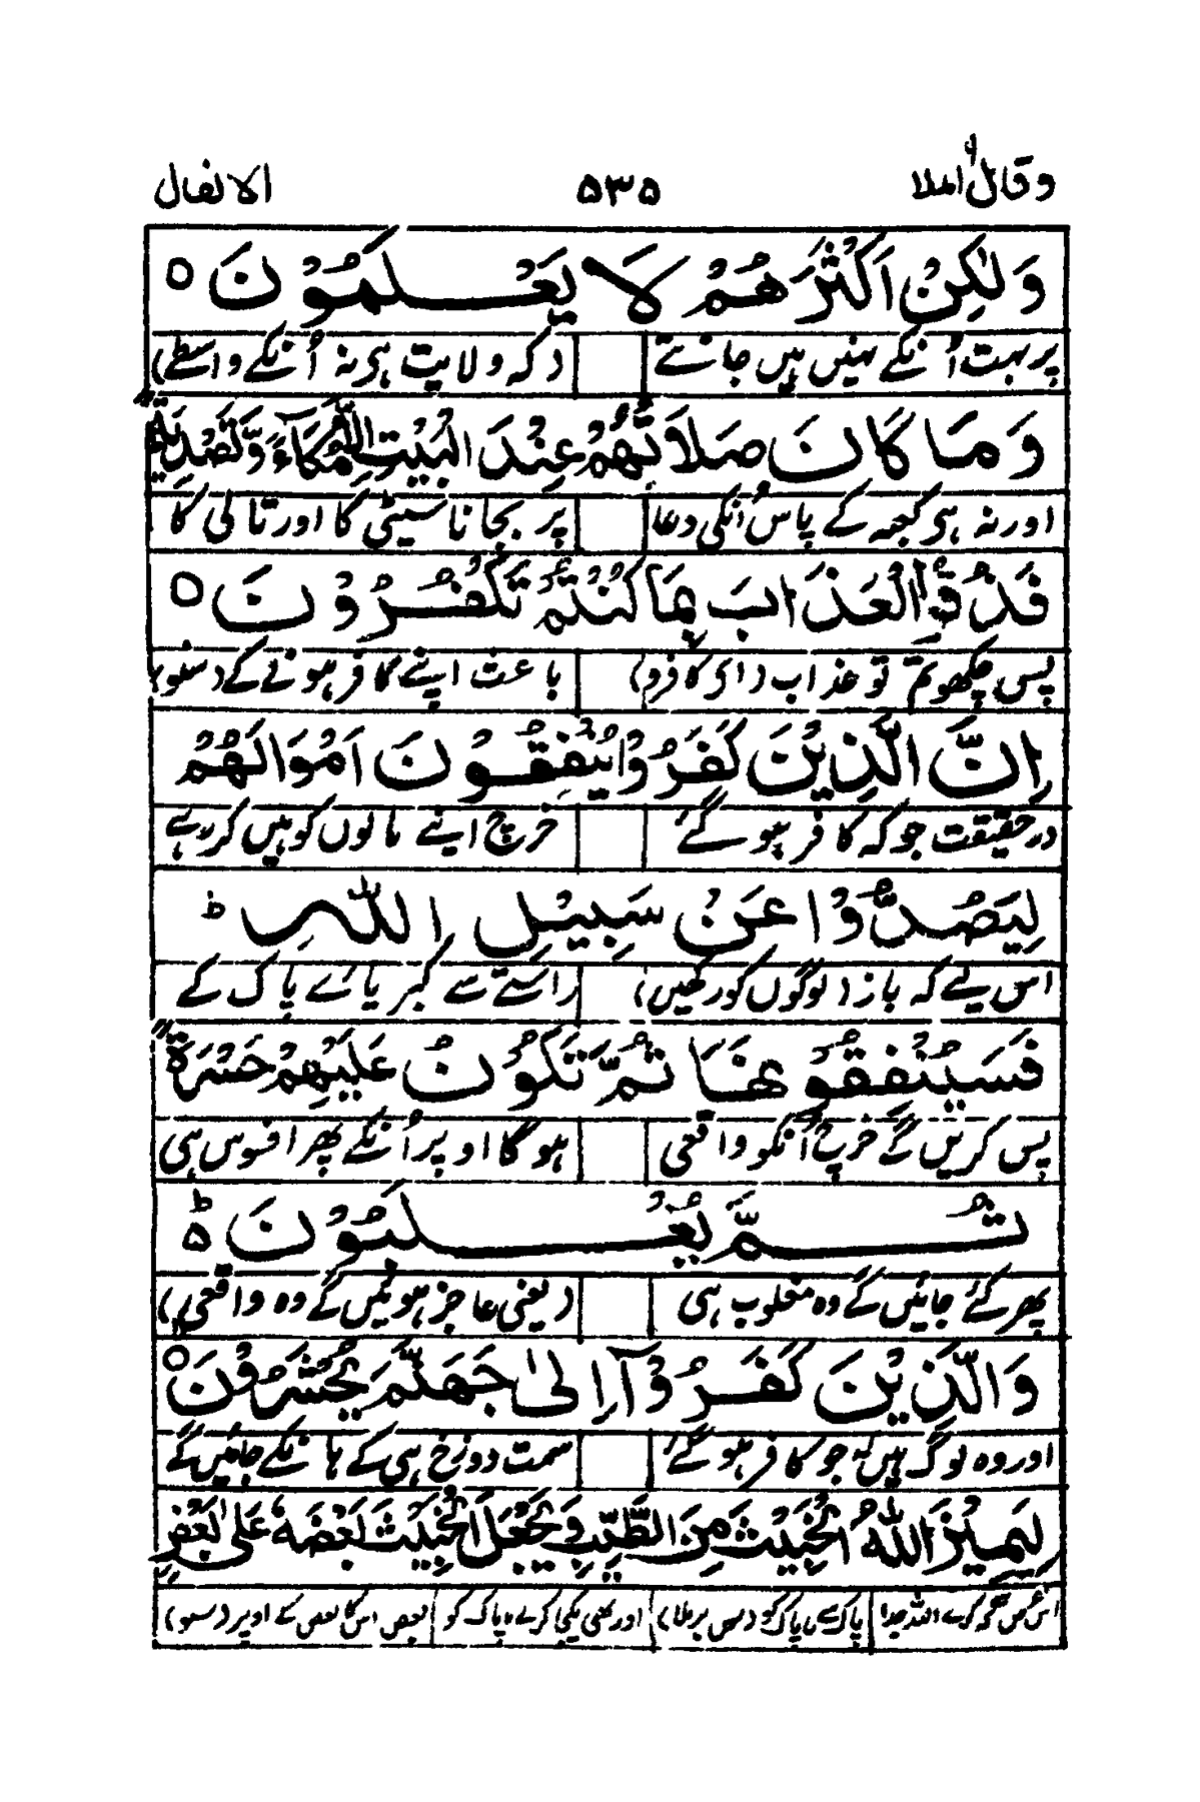 وقال الملا ۵۳۵ الانفال
وَلٰكِنْ اَكْثَرَهُمْ لَا يَعْلَمُوْنَ ○
پر بہت اُنکے نہیں ہیں جانتے (کہ ولایت ہی نہ اُنکے واسطے)
وَمَا كَانَ صَلَاتُهُمْ عِنْدَ الْبَيْتِ اِلَّا مُكَآءً وَّتَصْدِيَةً ؕ
اور نہ ہی کعبہ کے پاس اُنکی دعا پر بجانا سیٹی کا اور تالی کا
فَذُوْقُوا الْعَذَابَ بِمَا كُنْتُمْ تَكْفُرُوْنَ ○
پس چکھو تم تو عذاب (اے کافرو) باعث اپنے کافر ہونے کے
اِنَّ الَّذِيْنَ كَفَرُوْا يُنْفِقُوْنَ اَمْوَالَهُمْ
درحقیقت جو کہ کافر ہو گئے خرچ اپنے مالوں کو ہیں کر رہے
لِيَصُدُّوْا عَنْ سَبِيْلِ اللّٰهِ ؕ
اس لیے کہ باز (لوگوں کو رکھیں) راستے سے کبریائے پاک کے
فَسَيُنْفِقُوْنَهَا ثُمَّ تَكُوْنُ عَلَيْهِمْ حَسْرَةً
پس کریں گے خرچ اُنکو واقعی ہو گا اوپر اُنکے پھر افسوس ہی
ثُمَّ يُغْلَبُوْنَ ؕ
پھر کئے جائیں گے وہ مغلوب ہی (یعنی عاجز ہوئیں گے وہ واقعی)
وَالَّذِيْنَ كَفَرُوْٓا اِلٰى جَهَنَّمَ يُحْشَرُوْنَ ○
اور وہ لوگ ہیں جو کافر ہو گئے سمت دوزخ ہی کے ہانکے جائیں گے
لِيَمِيْزَ اللّٰهُ الْخَبِيْثَ مِنَ الطَّيِّبِ وَيَجْعَلَ الْخَبِيْثَ بَعْضَهٗ عَلٰى بَعْضٍ
کرے اللہ جدا پاک سے ناپاک کو اور بعض اس کا بعض کے اوپر